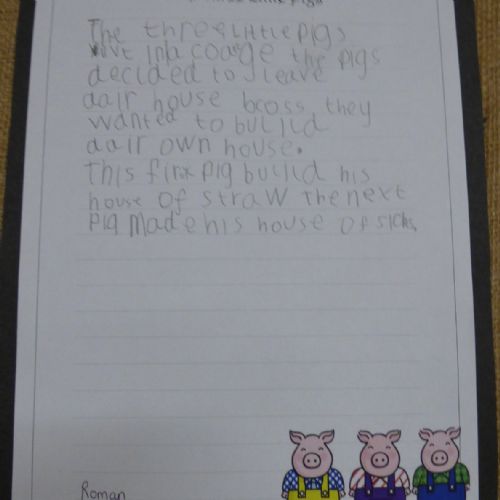 Little Pigs
The three Little pigs
in a coage the pigs
decided to leave
dair house bcoss they
wanted to builld
dair own house.
This firx pig builld his
house of straw The next
pig made his house of sichs,
Roman